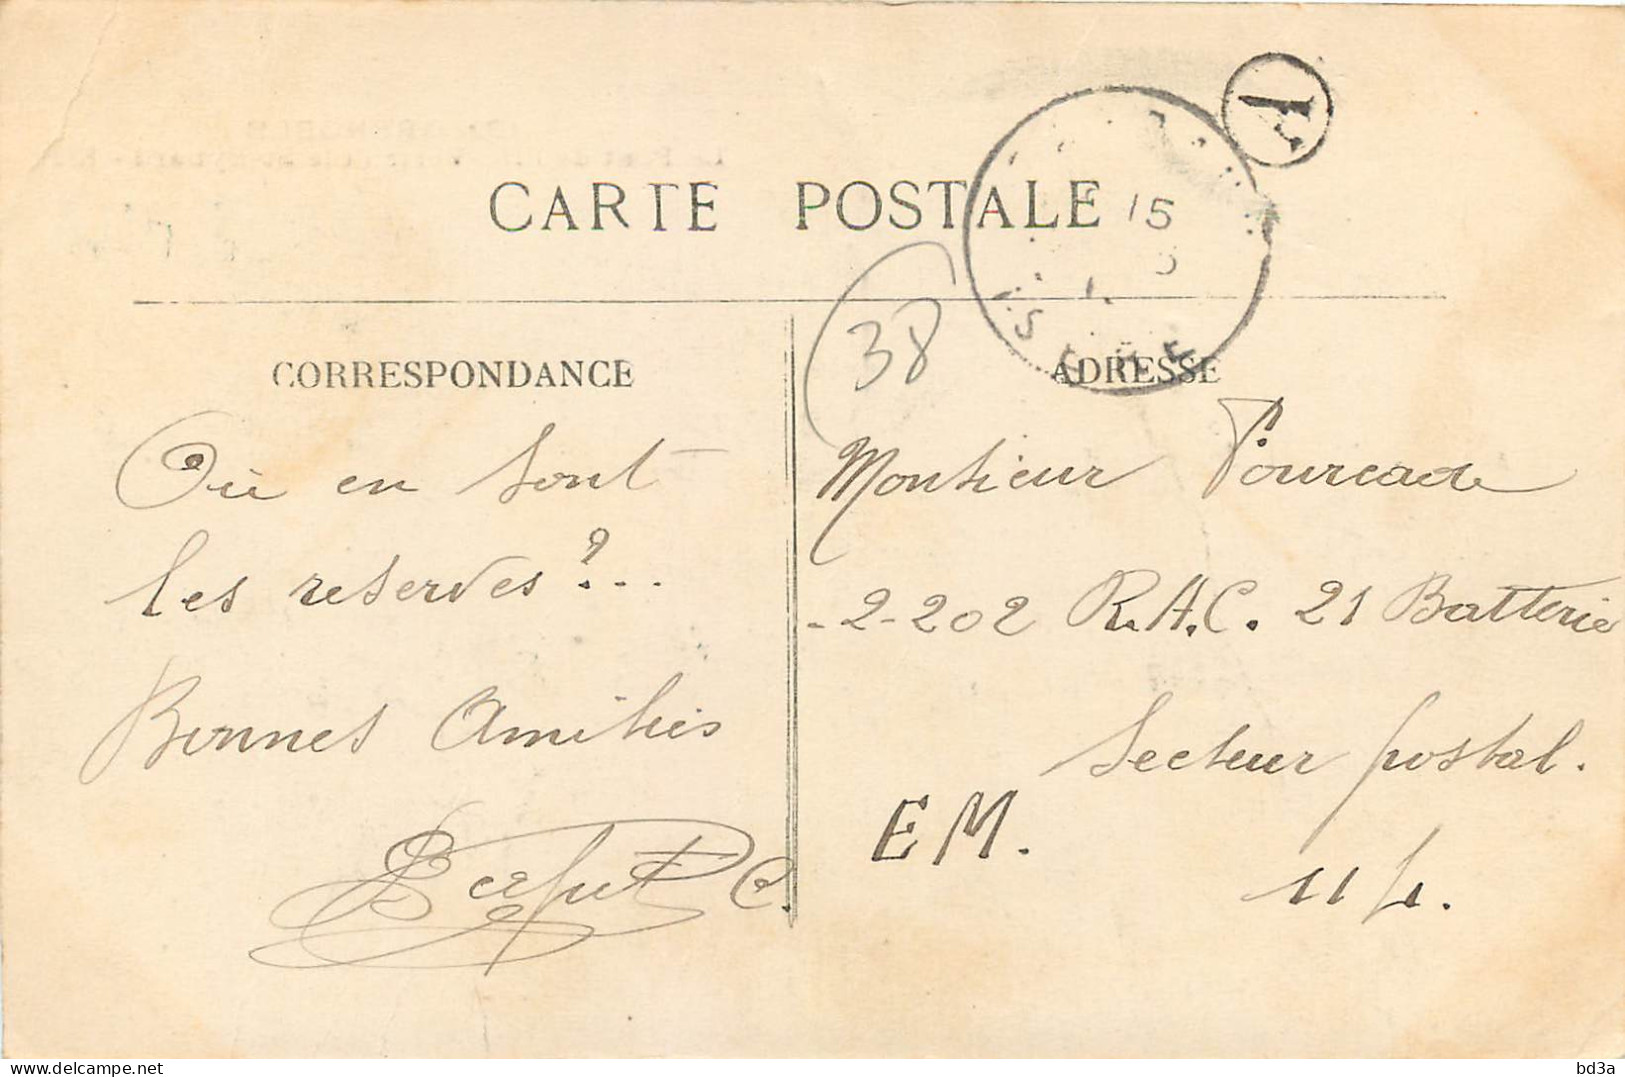 CARTE POSTALE
15
38
CORRESPONDANCE
Où en sont
les reserves ?...
Bonnes Amitiés
C.
ADRESSE
Monsieur Fourcade
-2-202 R.A.C. 21 Batterie
Secteur postal.
EM.
114.
delcampe.net
bd3a